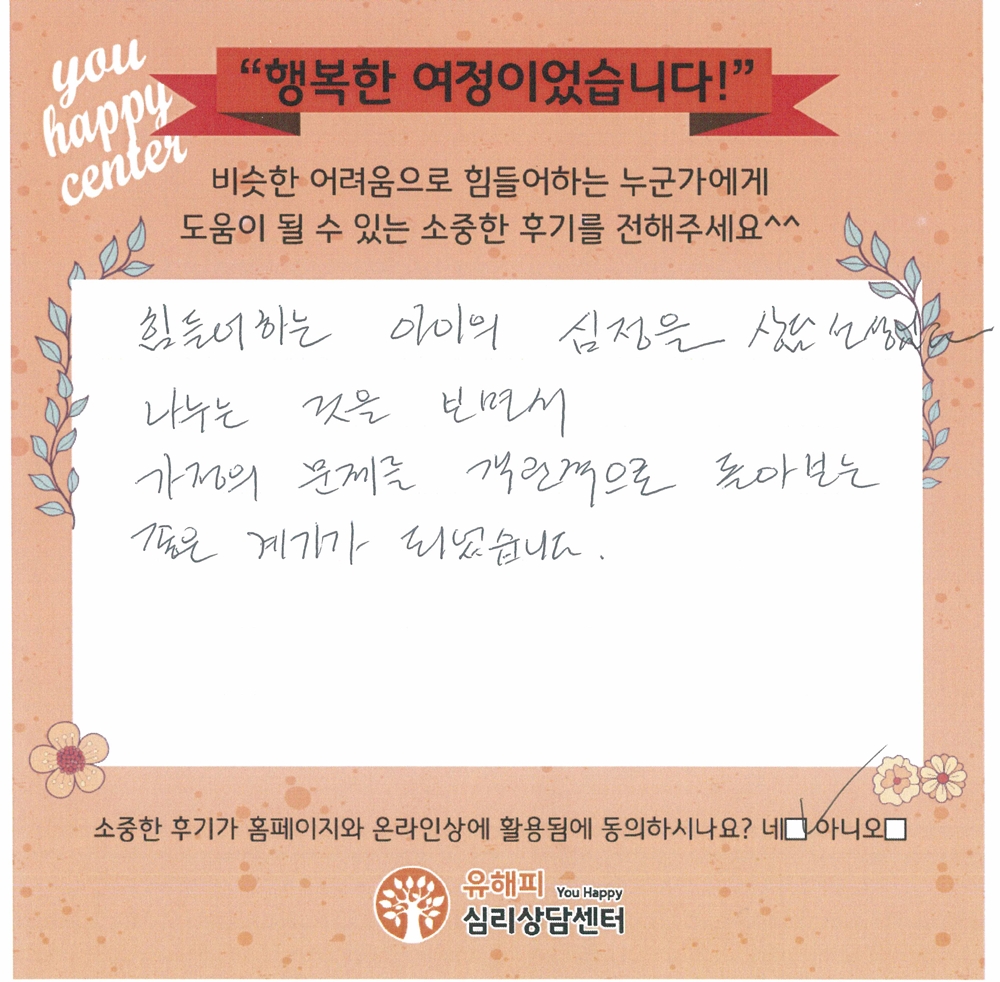 you
happy
center
“행복한 여정이었습니다!”
비슷한 어려움으로 힘들어하는 누군가에게
도움이 될 수 있는 소중한 후기를 전해주세요^^
힘들어하는 아이의 심정을 상담선생님과
나누는 것을 보면서
가정의 문제를 객관적으로 돌아보는
좋은 계기가 되었습니다.
소중한 후기가 홈페이지와 온라인상에 활용됨에 동의하시나요? 네 아니오
유해피 You Happy
심리상담센터